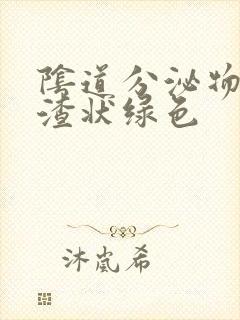 陰道分泌物
渣状绿色
沐嵐希